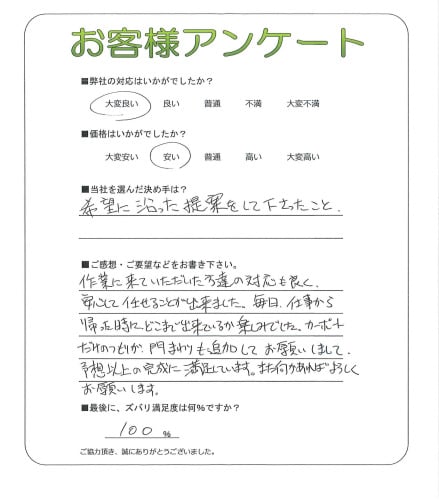 お客様アンケート
■弊社の対応はいかがでしたか？
大変良い 良い 普通 不満 大変不満
■価格はいかがでしたか？
大変安い 安い 普通 高い 大変高い
■当社を選んだ決め手は？
希望に沿った提案をして下さったこと．
■ご感想・ご要望などをお書き下さい。
作業に来ていただいた方達の対応も良く、
安心して任せることが出来ました。毎日、仕事から
帰った時に、どこまで出来ているか楽しみでした。カーポート
だけのつもりが、門まわりも追加してお願いしまして、
予想以上の完成に満足しています。また何かあればよろしく
お願いします。
■最後に、ズバリ満足度は何％ですか？
100 ％
ご協力頂き、誠にありがとうございました。